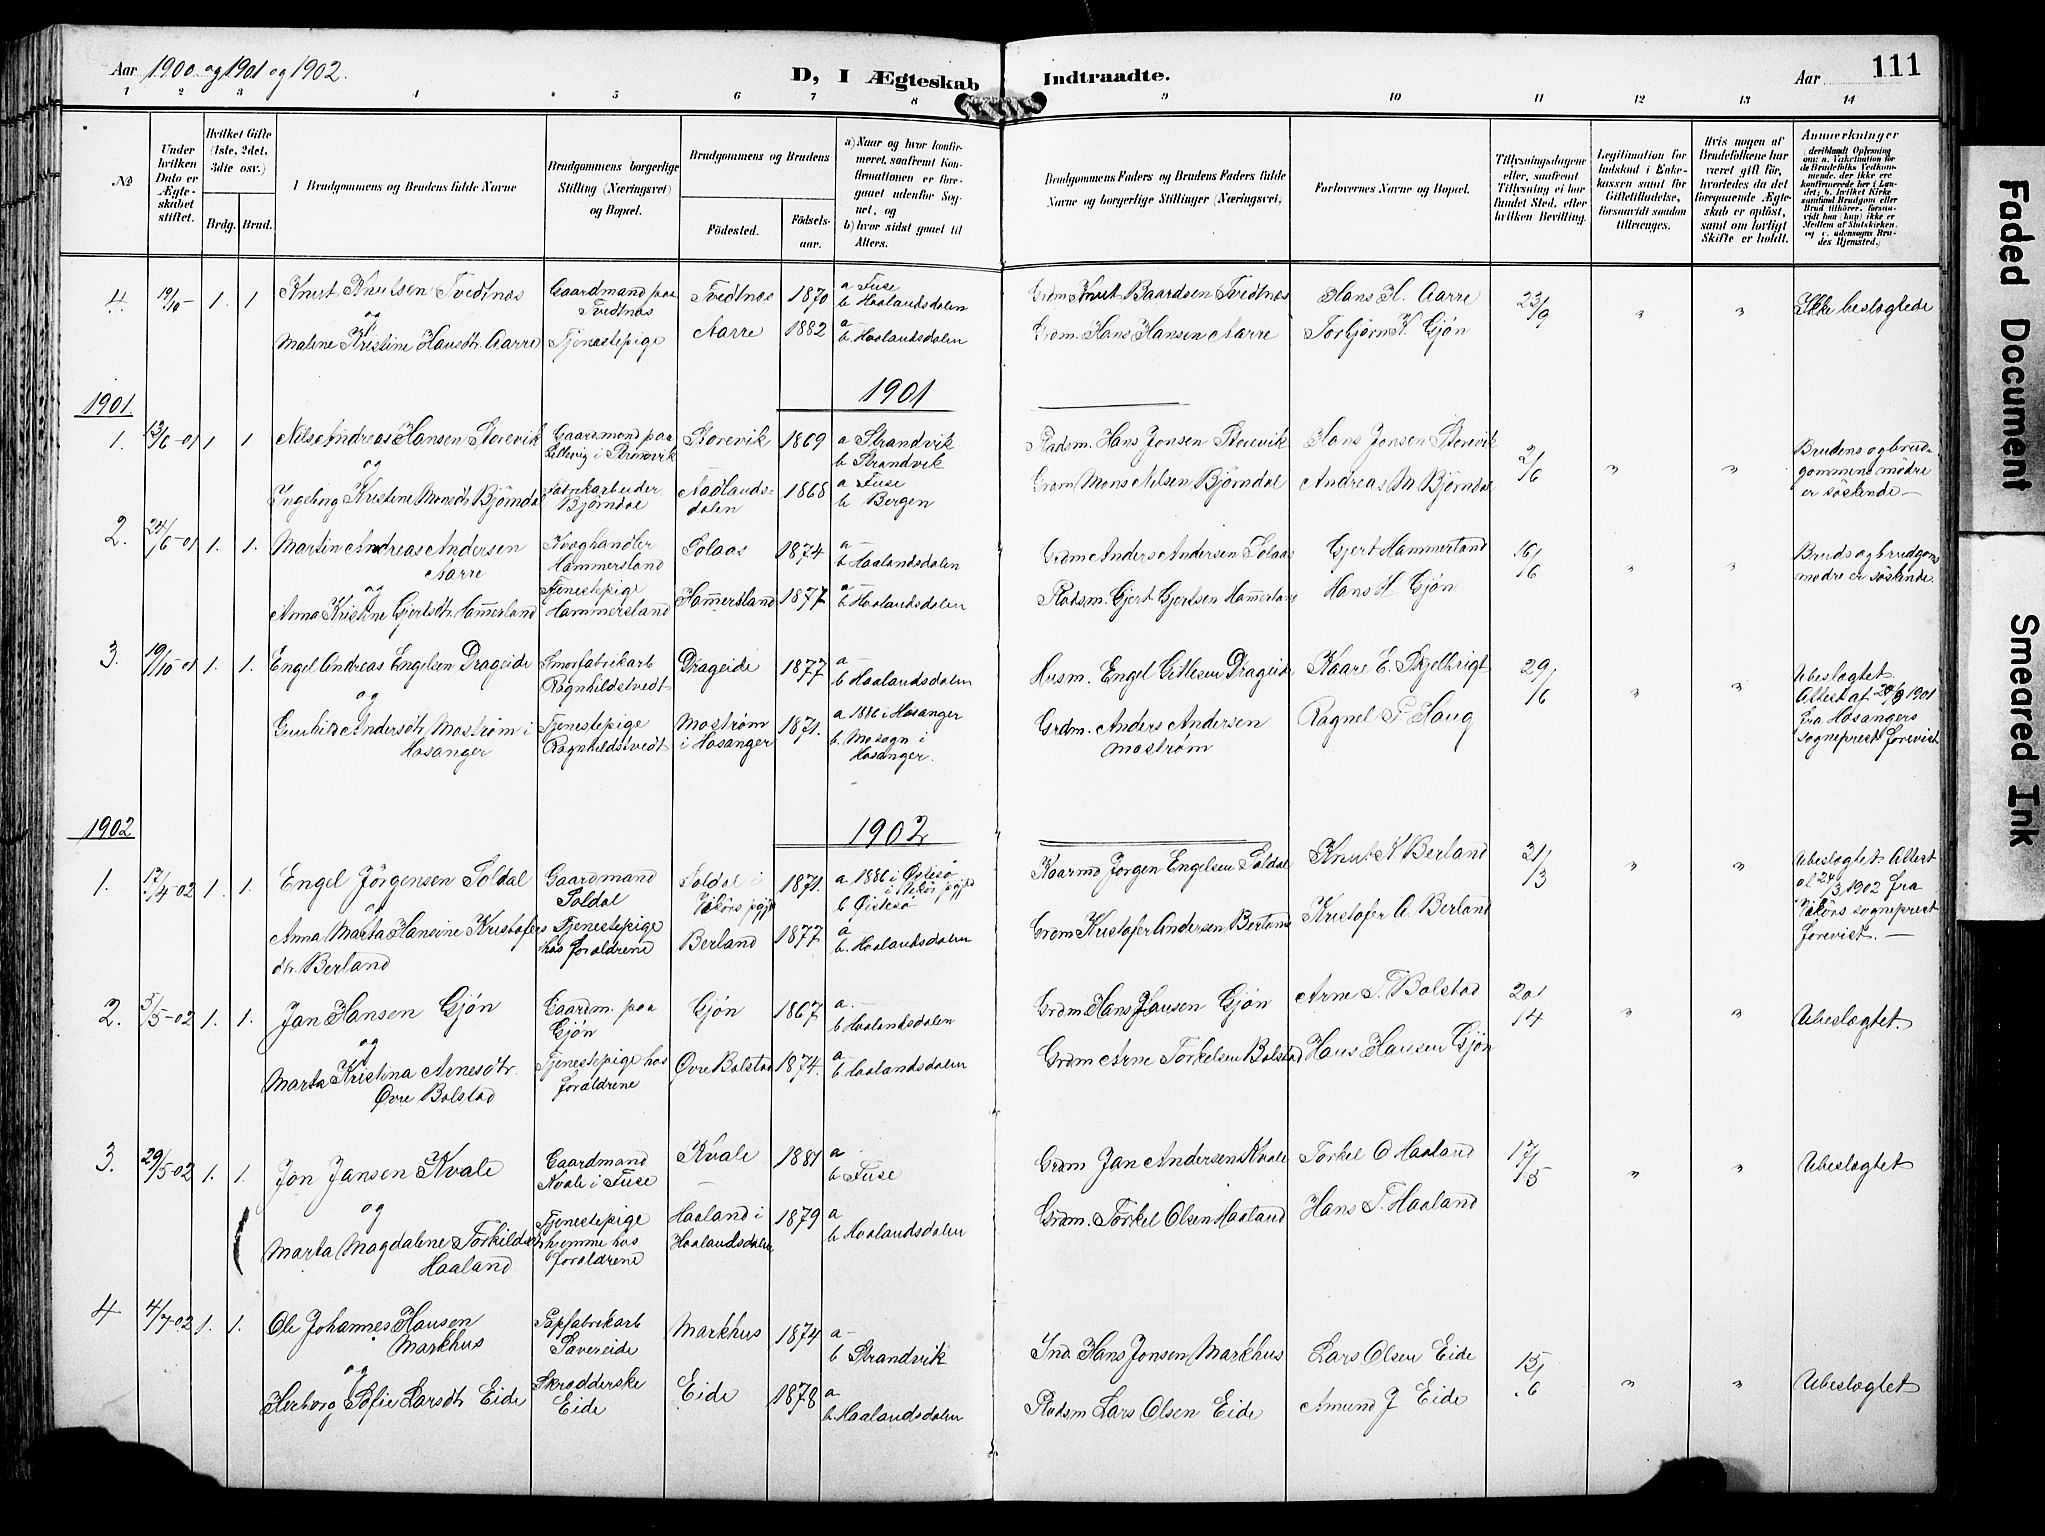 Aar 1900 og 1901 og 1902.
D, I Ægteskab Indtraadte.
Aar
111
1 2 3 4 5 6 7 8 9 10 11 12 13 14
№
Under hvilken Dato er Ægteskabet stiftet.
Hvilket Gifte (1ste, 2det, 3dte osv.)
Brdg. Brud.
1 Brudgommens og Brudens fulde Navne
Brudgommens borgerlige Stilling (Næringsvei) og Bopæl.
Brudgommens og Brudens
Födested.
Födselsaar.
a) Naar og hvor konfirmeret, saafremt Konfirmationen er foregaaet udenfor Sognet, og
b) hvor sidst gaaet til Alters.
Brudgommens Faders og Brudens Faders fulde Navne og borgerlige Stillinger (Næringsvei)
Forlovernes Navne og Bopæl.
Tillysningsdagene eller, saafremt Tillysning ei har fundet Sted, efter hvilken Bevilling.
Legitimation for Indskud i Enkekassen samt for Giftetilladelse, forsaavidt saadan tiltrænges.
Hvis nogen af Brudefolkene har været gift för, hvorledes da det foregaaende Ægteskab er oplöst, samt om lovligt Skifte er holdt.
Anmærkninger
deriblandt Oplysning om: a. Vakcination for de Brudefolks Vedkommende, der ikke ere konfirmerede her i Landet; b. hvilket Kirkesamfund Brudgom eller Brud tilhörer, forsaavidt han (hun) ikke er Medlem af Statskirken, og c. udensogns Brudes Hjemsted.)
4. 19/10 1. 1 Knut Knutsen Tvedtnes
Gaardmand paa Tvedtnes
Tvedtnes 1870 a Fuse
b Haalandsdalen
Grdm Knut Baardsen Tvedtnes
Hans H. Aarre
23/9 " " Ikke beslægtede
og
Malene Kristine Hansdtr. Aarre
Tjenestepige
Aarre 1882 a
b Haalandsdalen
Grdm. Hans Hansen Aarre
Torbjørn K. Gjøn
1901 1901
1. 13/6-01 1 1 Nils Andreas Hansen Storevik
Gaardmand paa
Storevik 1869 a Strandvik
b Strandvik
Pladsm. Hans Jonsen Storevik
Hans Jonsen Storevik
2/6 " " Brudens og brudgommens mødre er søstende —
og
Ingeborg Kristine Monsdtr Bjørndal
Fabrikarbeider Bjørndal
Aadlandsdalen 1868 a Fuse
b Bergen
Grdm Mons Nilsen Bjørndal
Andreas M Bjørndal
2. 24/6-01 1. 1. Martin Andreas Andersen Aarre
Kvæghandler Hammersland
Solaas 1874 a
b Haalandsdalen
Grdm Anders Andersen Solaas
Gjert Hammerland
16/6 " " Bruds og brudgoms mødre er søstende.
og
Anna Kristine Gjertsdtr. Hammerland
Tjenestepige Hammersland
Hammersland 1877 a
b. Haalandsdalen
Pladsm. Gjert Gjertsen Hammerland
Hans H Gjøn
3. 19/10-01 1. 1. Engel Andreas Engelsen Drageide
Smørfabrikarb Ragnhildstvedt
Drageide 1877 a
b Haalandsdalen
Husm. Engel Gitlesen Drageide
Kaare E. Skjelbrigt
29/6 " " Ubeslægtet.
Attest af 28/9 1901 fra Hosangers sogneprest forevist
og
Gunhild Andersdtr. Mostrøm i Hosanger
Tjenestepige Ragnhildstvedt
Mostrøm i Hosanger 1871. a 1886 i Hosanger
b. Mo sogn i Hosanger.
Grdm. Anders Andersen Mostrøm
Ragnel P Haug
1902 1902
1. 17/4-02 1. 1. Engel Jörgensen Soldal
Gaardmand Soldal
Soldal i Vikørs pgjd 1871. a 1886 i Østesø i Vikør pgjld
b Østesø
Jørgen Engelsen Soldal
Knut K Berland
31/3 " " Ubeslægtet. Attest af 24/3 1902 fra Vikørs sogneprest forevist. —
og
Anna Marta Hansine Kristofersdtr. Berland
Tjenestepige hos forældrene
Berland 1877 a
b. Haalandsdalen
Grdm Kristofer Andersen Berland
Kristofer A. Berland
2. 5/5-02 1. 1. Jan Hansen Gjøn
Gaardm. paa Gjøn
Gjøn 1867 a.
b Haalandsdalen
Grdm Hans Hansen Gjøn
Arne T. Bolstad
20/4 " " Ubeslægtet.
og
Marta Kristina Arnesdtr. Øvre Bolstad
Tjenestepige hos forældrene
Øvre Bolstad 1874. a
b. Haalandsdalen
Grdm Arne Torkelsen Bolstad
Hans Hansen Gjøn
3. 29/5-02 1. 1. Jon Jansen Kvale
Gaardmand Kvale i Fuse
Kvale 1881 a
b Fuse
Grdm Jan Andersen Kvale
Torkel O Haaland
17/5 " " Ubeslægtet
og
Marta Magdalene Torkildsdtr Haaland
Tjenestepige hjemme hos forældrene
Haaland i Haalandsdalen 1879 a
b Haalandsdalen
Grdm. Torkel Olsen Haaland
Hans T. Haaland
4 4/7-02 1. 1. Ole Johannes Hansen Markhus
Papfabrikarb Sævereide
Markhus 1874 a
b Strandvik
Ind. Hans Jonsen Markhus
Lars Olsen Eide
15/6 " " Ubeslægtet
og
Herborg Sofie Larsdtr Eide
Skrædderske Eide
Eide 1878 a
b. Haalandsdalen
Pladsm Lars Olsen Eide
Amund J Eide
Faded Document
Smeared Ink